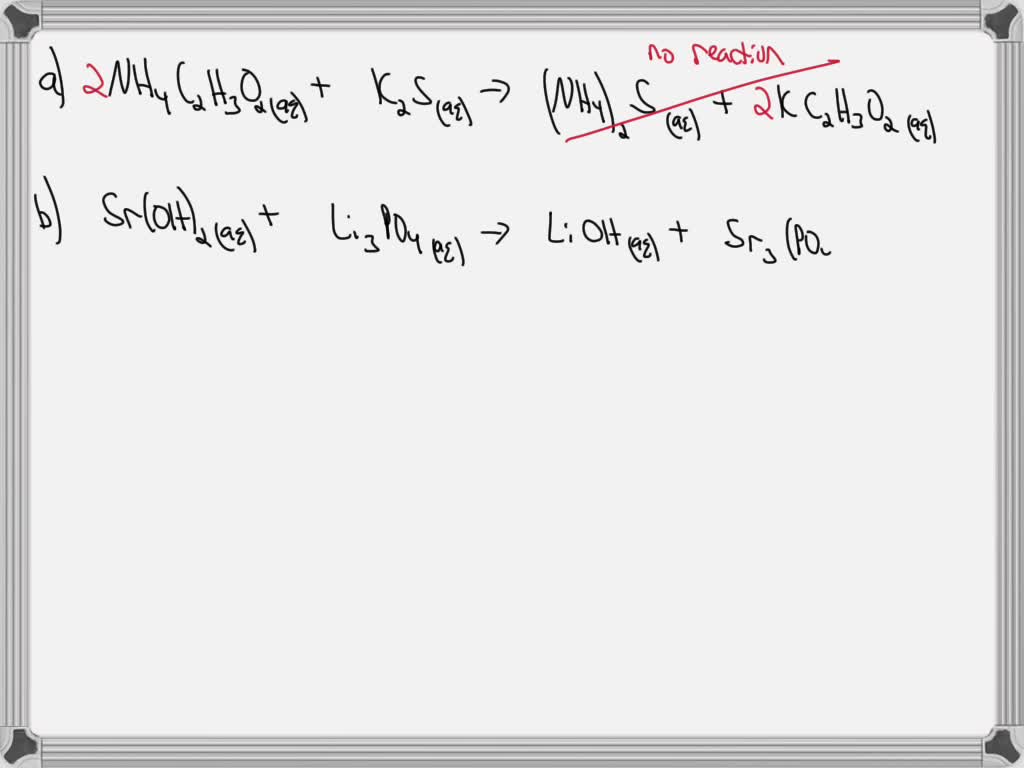 no reaction
a) 2NH₄C₂H₃O₂(aq) + K₂S(aq) → (NH₄)₂S(aq) + 2KC₂H₃O₂(aq)
b) Sr(OH)₂(aq) + Li₃PO₄(aq) → LiOH(aq) + Sr₃(PO